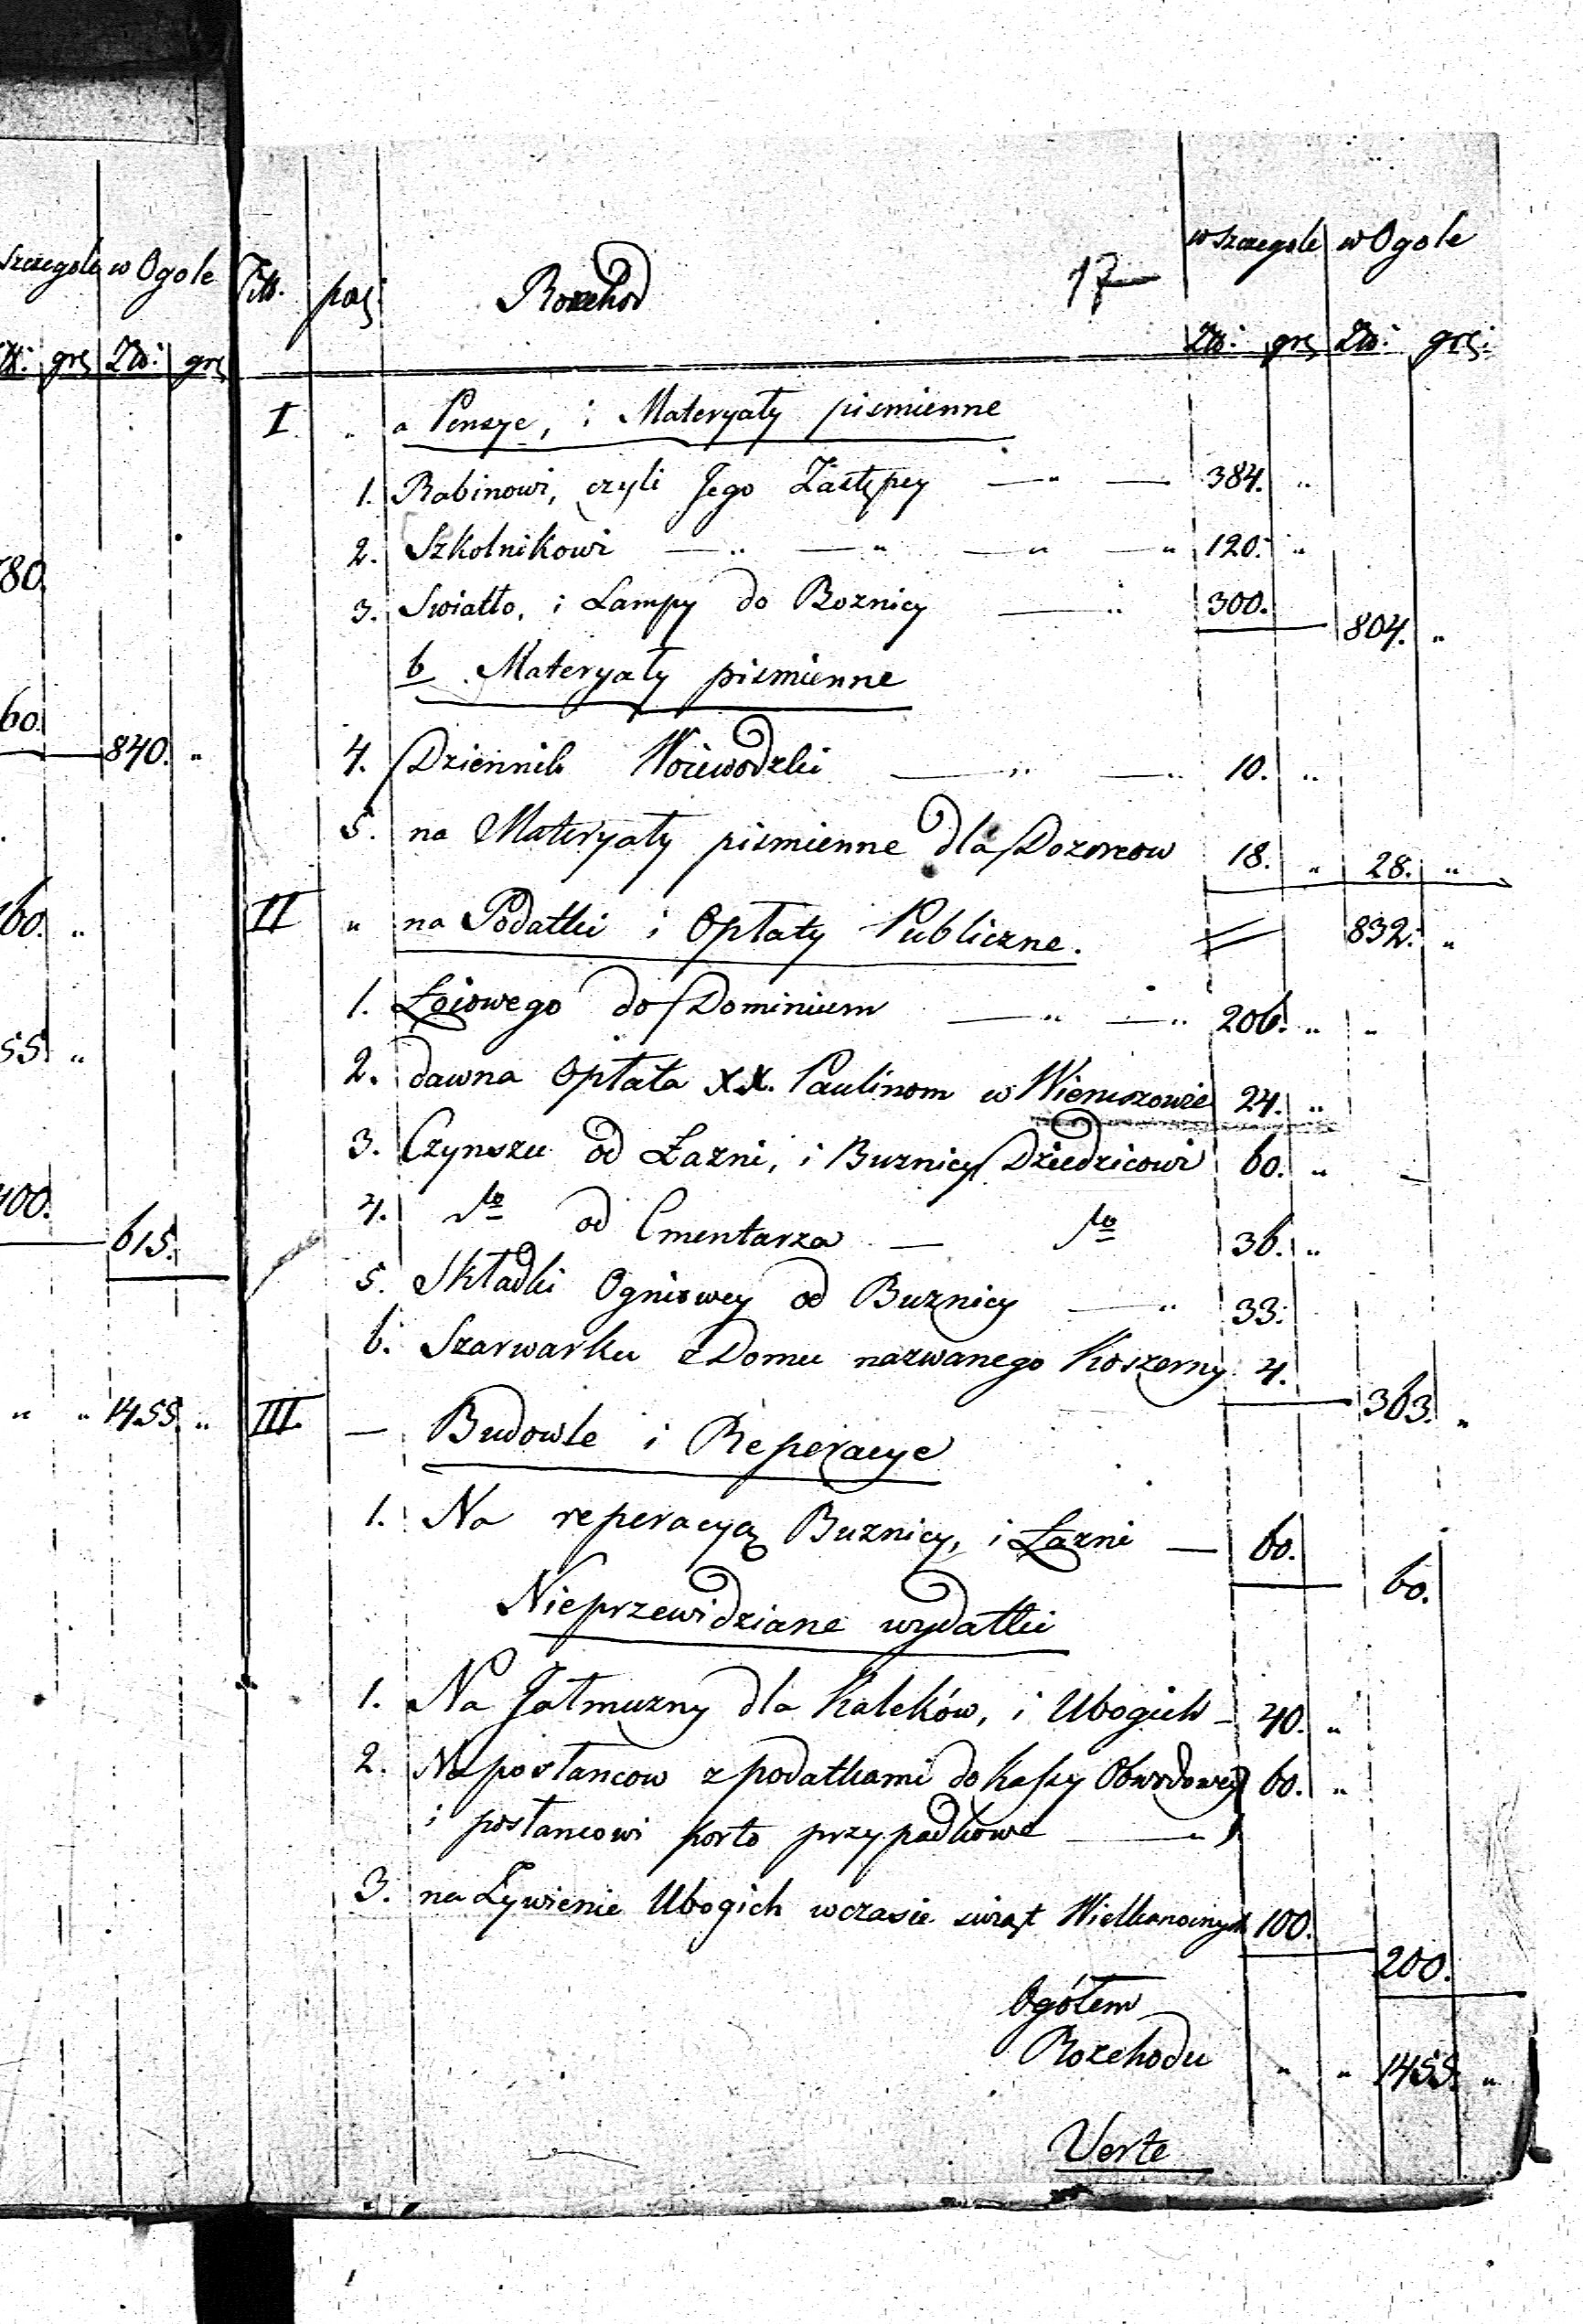 szczegole w Ogole
gr Zł: gr
780.
60.
840. "
160. "
55. "
400.
615.
" " 1455. "
Titt. poz: Rozchod 17 w szczegole w Ogole
Zł: gr Zł: grꝫ:
I. " a Pensye, i Materyały pismienne
1. Rabinowi, czyli Jego Zastępcy — " — 384. "
2. Szkolnikowi — " — " — " — " 120. "
3. Swiatło, i Lampy do Boznicy — " 300. 804. "
b Materyały pismienne
4. Dziennik Woiewodzki — " — " 10. "
5. na Materyały pismienne dla Dozorcow 18. " 28. "
II " na Podatki i Opłaty Publiczne. 832. "
1. Łoiowego do Dominium — " — " 206. " "
2. dawna Opłata XX. Paulinom w Wieruszowie 24. "
3. Czynszu od Łazni, i Buznicy Dziedzicowi 60. "
4. dto od Cmentarza — dto 36. "
5. Składki Ogniowey od Buznicy — " 33.
6. Szarwarku z Domu nazwanego Koszerny 4. 363. "
III. — Budowle i Reperacye
1. Na reperacyą Buznicy, i Łazni — 60. 60.
Nieprzewidziane wydatki
1. Na Jałmuzny dla Kaleków, i Ubogich — 40. "
2. Na posłancow z podatkami do Kassy Obwodowey 60. "
i posłancowi porto przypadkowe — "
3. na Zywienie Ubogich wczasie swiąt Wielkanocnych 100.
200.
Ogółem
Rozchodu " " 1455. "
Verte